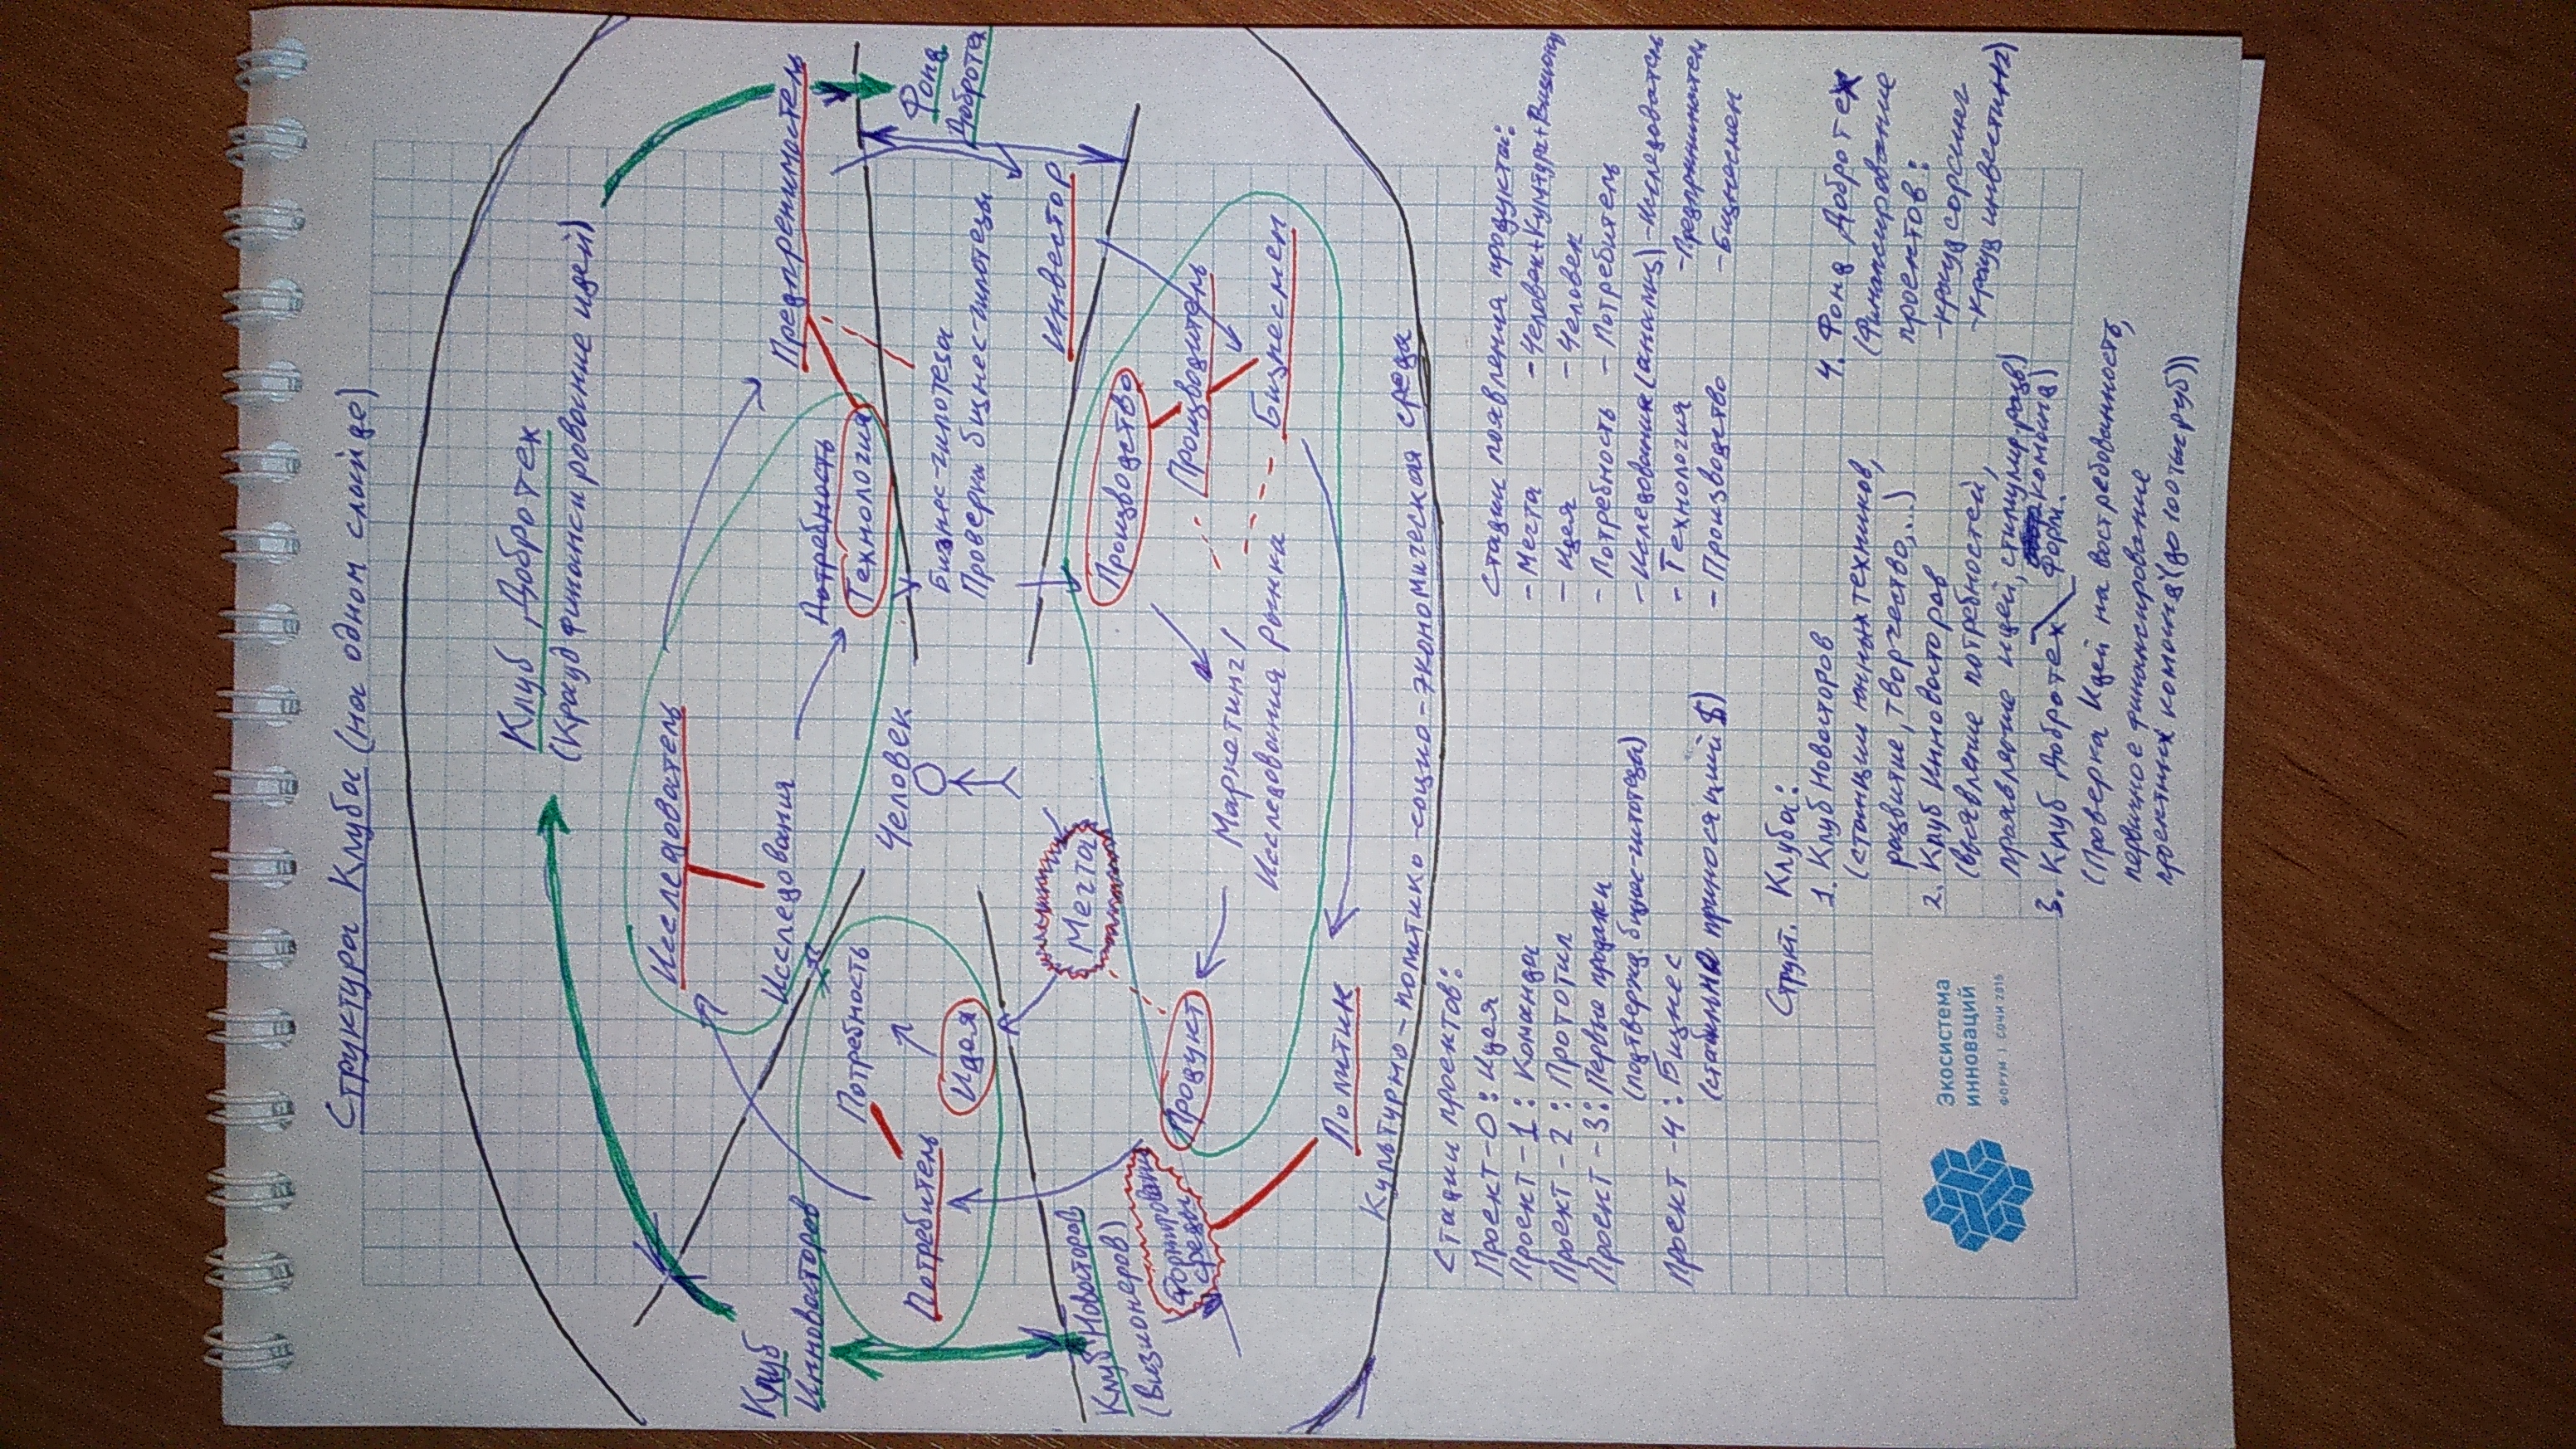 Структура Клуба (на одном слайде)
Клуб Добротех
(Крауд финансирование идей)
Исследователь
Клуб
Инноваторов
Исследования
Предприниматель
Потребность
Технология
Потребность
Человек
Потребитель
Идея
Бизнес-гипотеза
Проверка бизнес-гипотезы
Фонд
Добротех
Инвестор
Мечта
Клуб Новаторов
(Визионеров)
Производство
Формирование
среды
Продукт
Производитель
Маркетинг/
Исследования рынка
Бизнесмен
Политик
Культурно-политико-социо-экономическая среда
Стадии проектов:
Проект-0: Идея
Проект-1: Команда
Проект-2: Прототип
Проект-3: Первые продажи
(подтвержд. бизнес-гипотезы)
Проект-4: Бизнес
(стабильно приносящий $)
Стадии появления продукта:
- Мечта - Человек+Культура+Визионер
- Идея - Человек
- Потребность - Потребитель
- Иследования (анализ) - Исследователь
- Технология - Предприниматель
- Производство - Бизнесмен
Структ. Клуба:
1. Клуб Новаторов
(станции юных техников,
развитие, творчество,...)
2. Клуб Инноваторов
(выявление потребностей,
проявление идей, стимулир. разв.)
форм. команд)
3. Клуб Добротех
(Проверка Идей на востребованность,
первичное финансирование
проектных команд (до 100 тыс руб))
4. Фонд Добротех
(Финансирование
проектов:
- крауд сорсинг
- крауд инвестинг)
Экосистема
инноваций
ФОРУМ | СОЧИ 2015